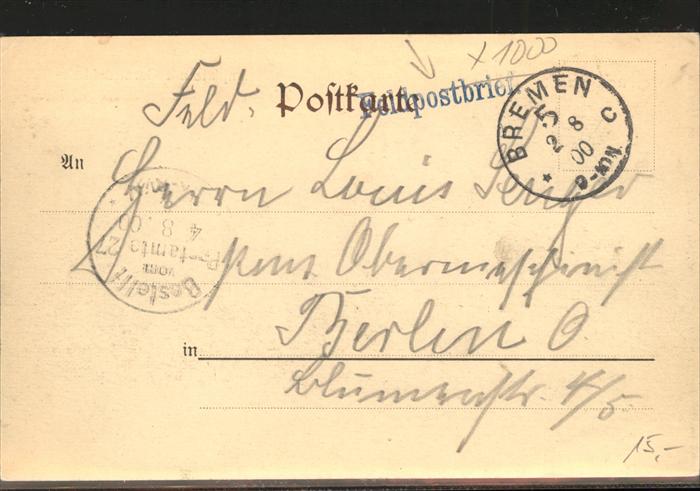 x 1000
Feld. Postkarte
Feldpostbrief
BREMEN C
2-5
8
00
Nm-e
An Herrn Louis
Bestellt
vom
Postamte 27
4 8. 00
pens. Obermaschinist
in Berlin O.
Blumenstr. 4/5.
15,-